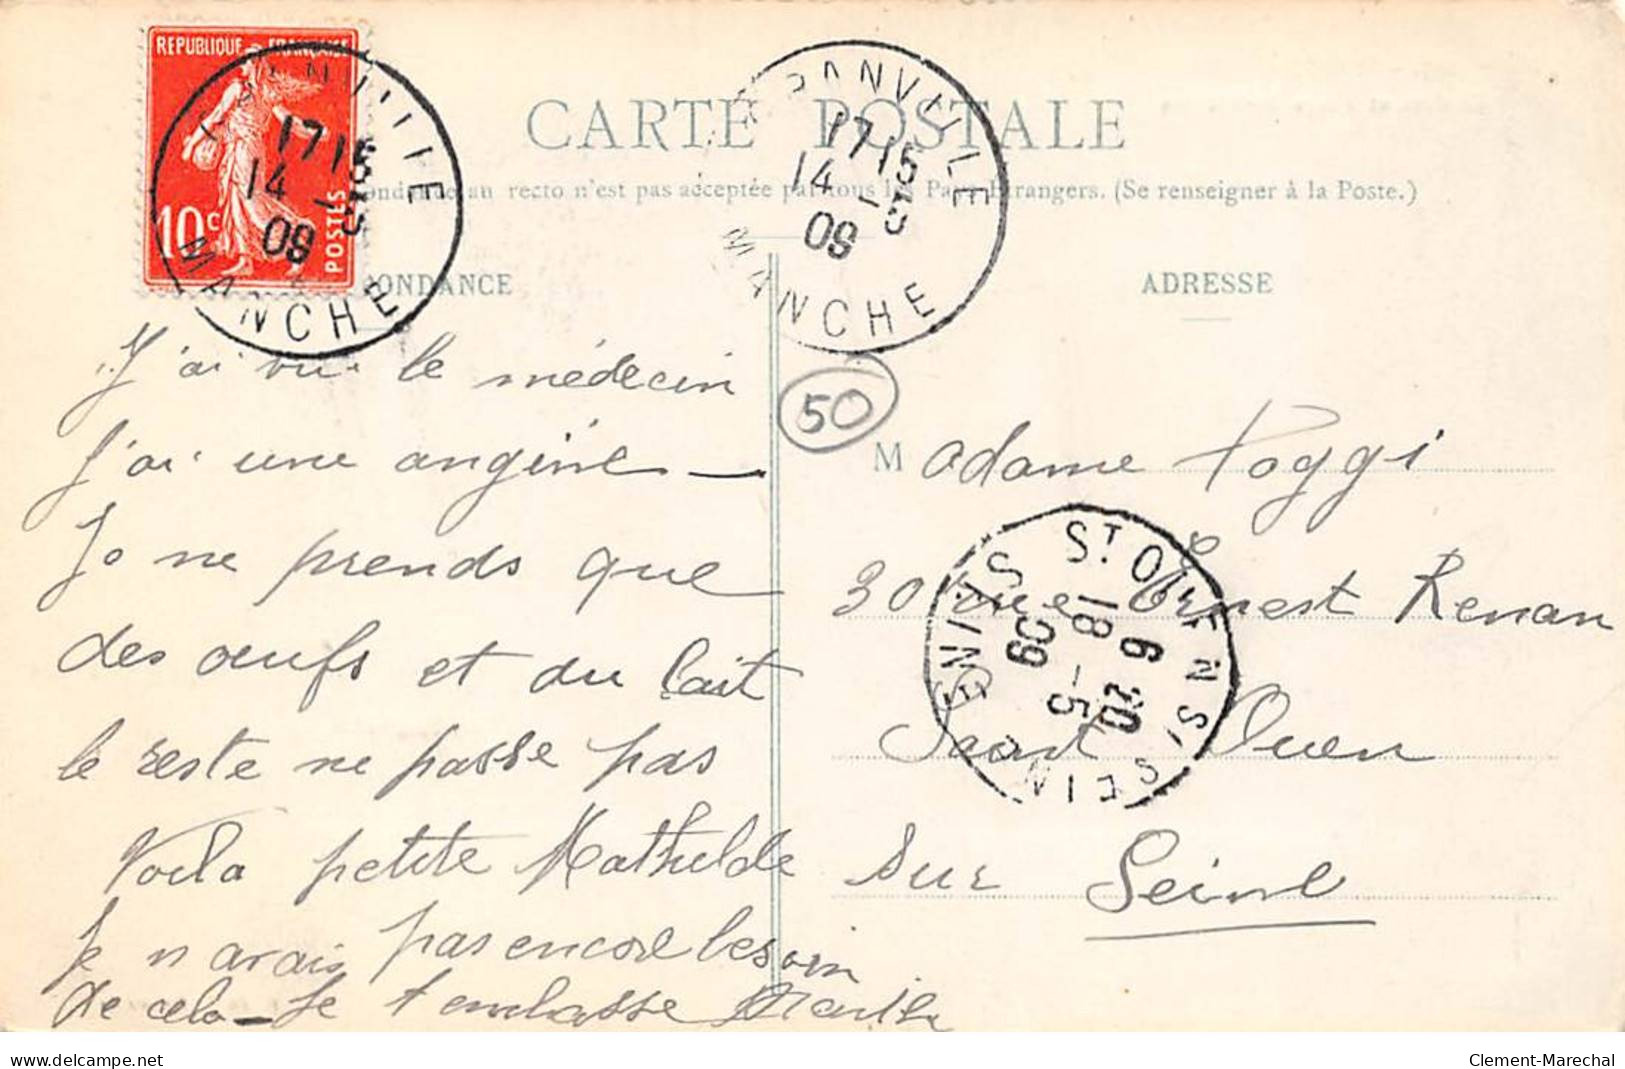 REPUBLIQUE FRANÇAISE
10c POSTES
GRANVILLE
1715
14 -5
09
MANCHE
GRANVILLE
1715
14 -5
09
MANCHE
CARTE POSTALE
ondance au recto n'est pas acceptée par tous les Pays Etrangers. (Se renseigner à la Poste.)
ONDANCE
ADRESSE
J'ai vu le médecin
j'ai une angine —
Je ne prends que
des oeufs et du lait
le reste ne passe pas
Voila petite Mathilde
Je n'avais pas encore besoin
de cela — Je t'embrasse
50
Madame Poggi
30 rue Ernest Renan
Saint Ouen
sur Seine
ST OUEN S/ SEINE
6 20
18 -5
09
SEINE
delcampe.net
Clement-Marechal